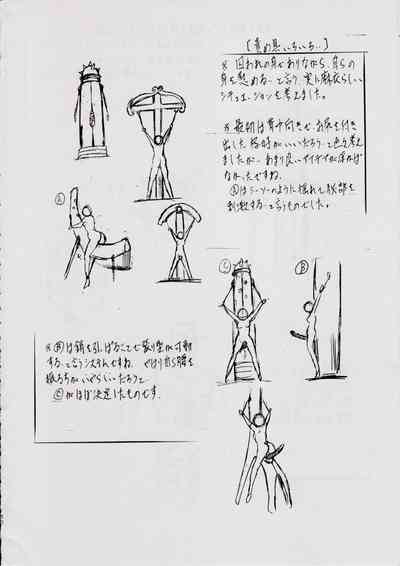 [責め具いろいろ…]
※ 囚われの身でありながら、自らの
身を慰める…と言う、実に素晴らしい
シチュエーションを考えました。
※ 最初は背中向きで、お尻を付き
出した格好がいいだろう…と色々考え
ましたが、あまり良いアイデアが浮かば
なかったですね。
Ⓐはシーソーのように揺れて股部を
刺激する…と言うものでした。
Ⓐ
Ⓒ
Ⓑ
※Ⓑは鎖を引っぱることで張り型が可動
する…と言うシステムですね。やはり自ら腰を
振る方がいやらしいだろうと
Ⓒがほぼ決定したものです。